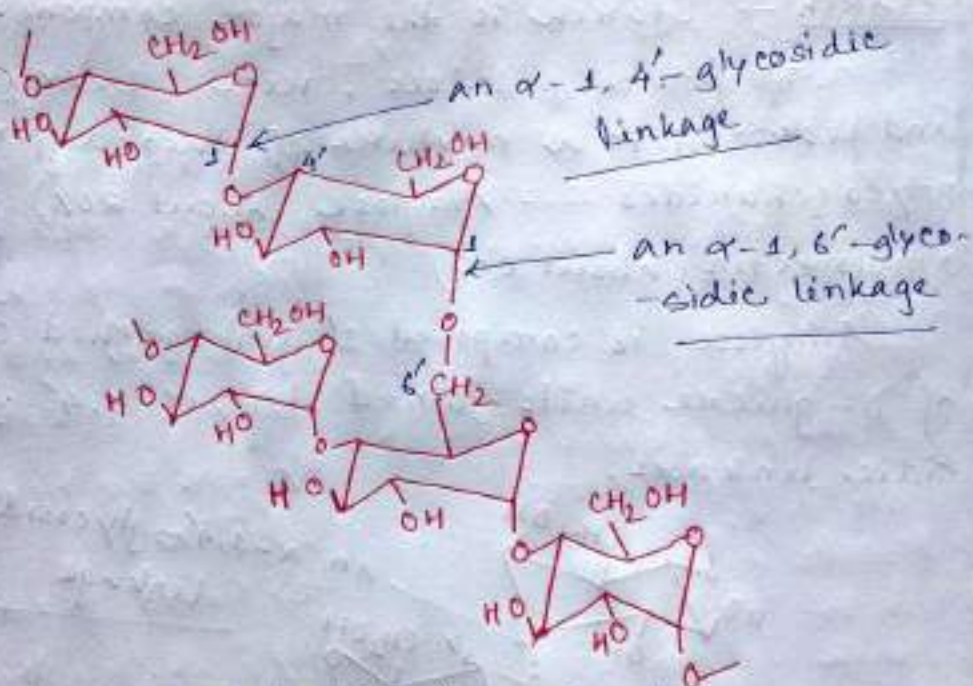 CH2OH
O
O
HO
HO
1
an α-1, 4'-glycosidic
linkage
O
4'
CH2OH
O
HO
OH
1
an α-1, 6'-glyco-
-sidic linkage
O
6'CH2
O
CH2OH
O
HO
HO
O
O
HO
OH
CH2OH
O
O
HO
HO
O